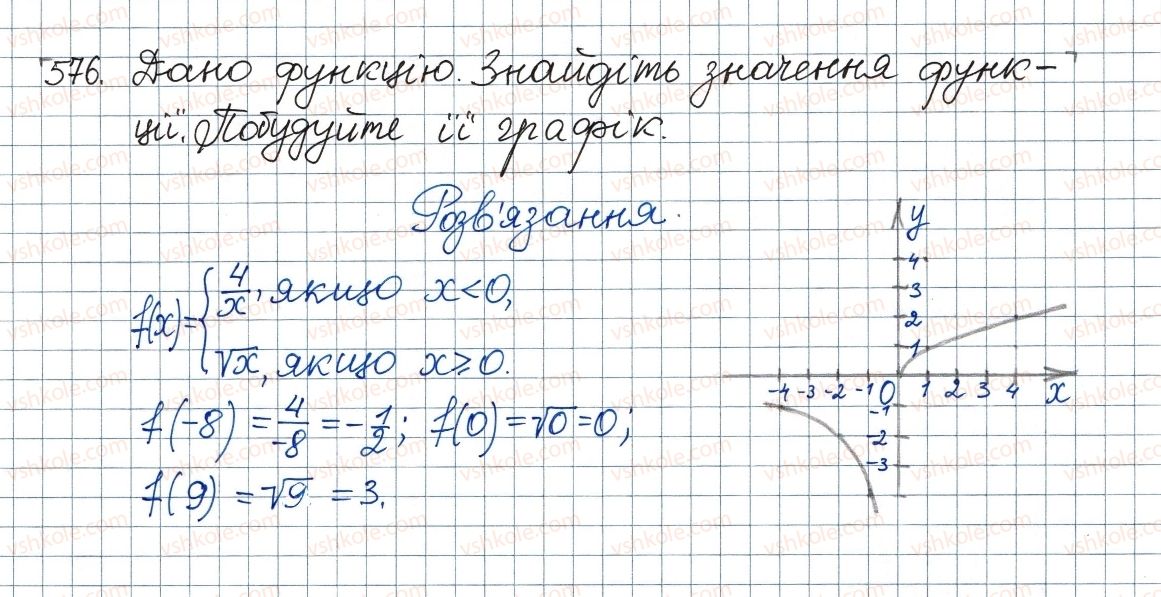 576. Дано функцію. Знайдіть значення функ-
ції. Побудуйте її графік.
Розв'язання.
f(x) = { 4/x, якщо x < 0,
√x, якщо x ≥ 0.
f(-8) = 4/-8 = -1/2; f(0) = √0 = 0;
f(9) = √9 = 3.
y
4
3
2
1
-4 -3 -2 -1 0 1 2 3 4 x
-1
-2
-3
vshkole.com